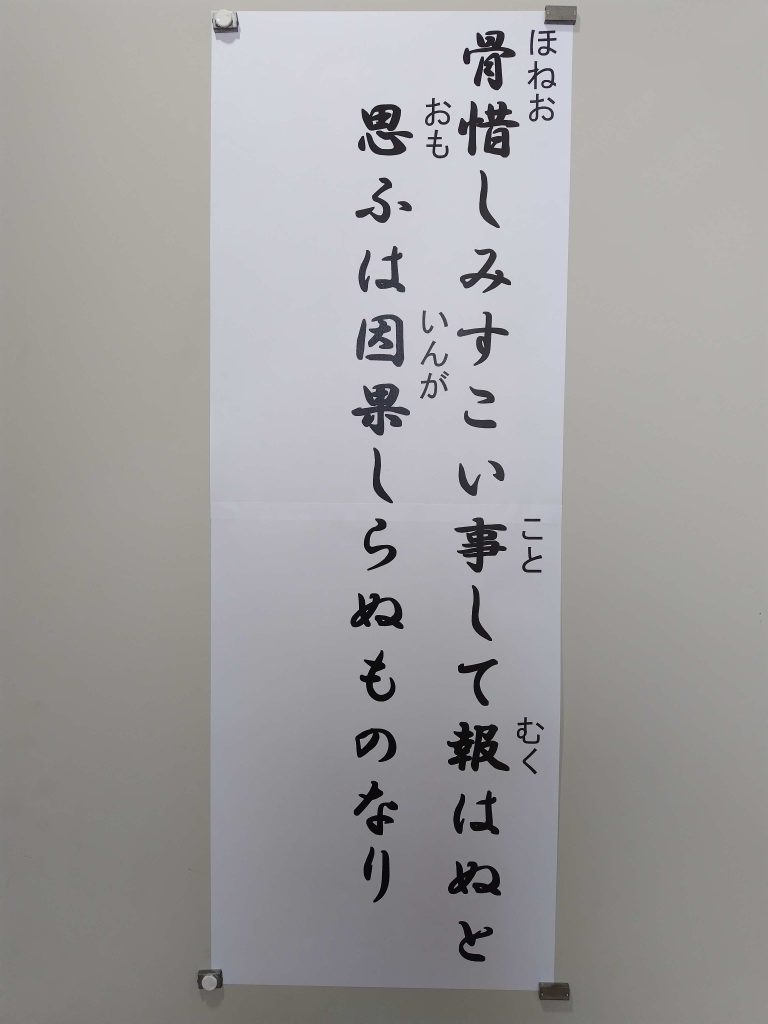 骨惜しみすこい事して報はぬと
ほねお
こと
むく
思ふは因果しらぬものなり
おも
いんが